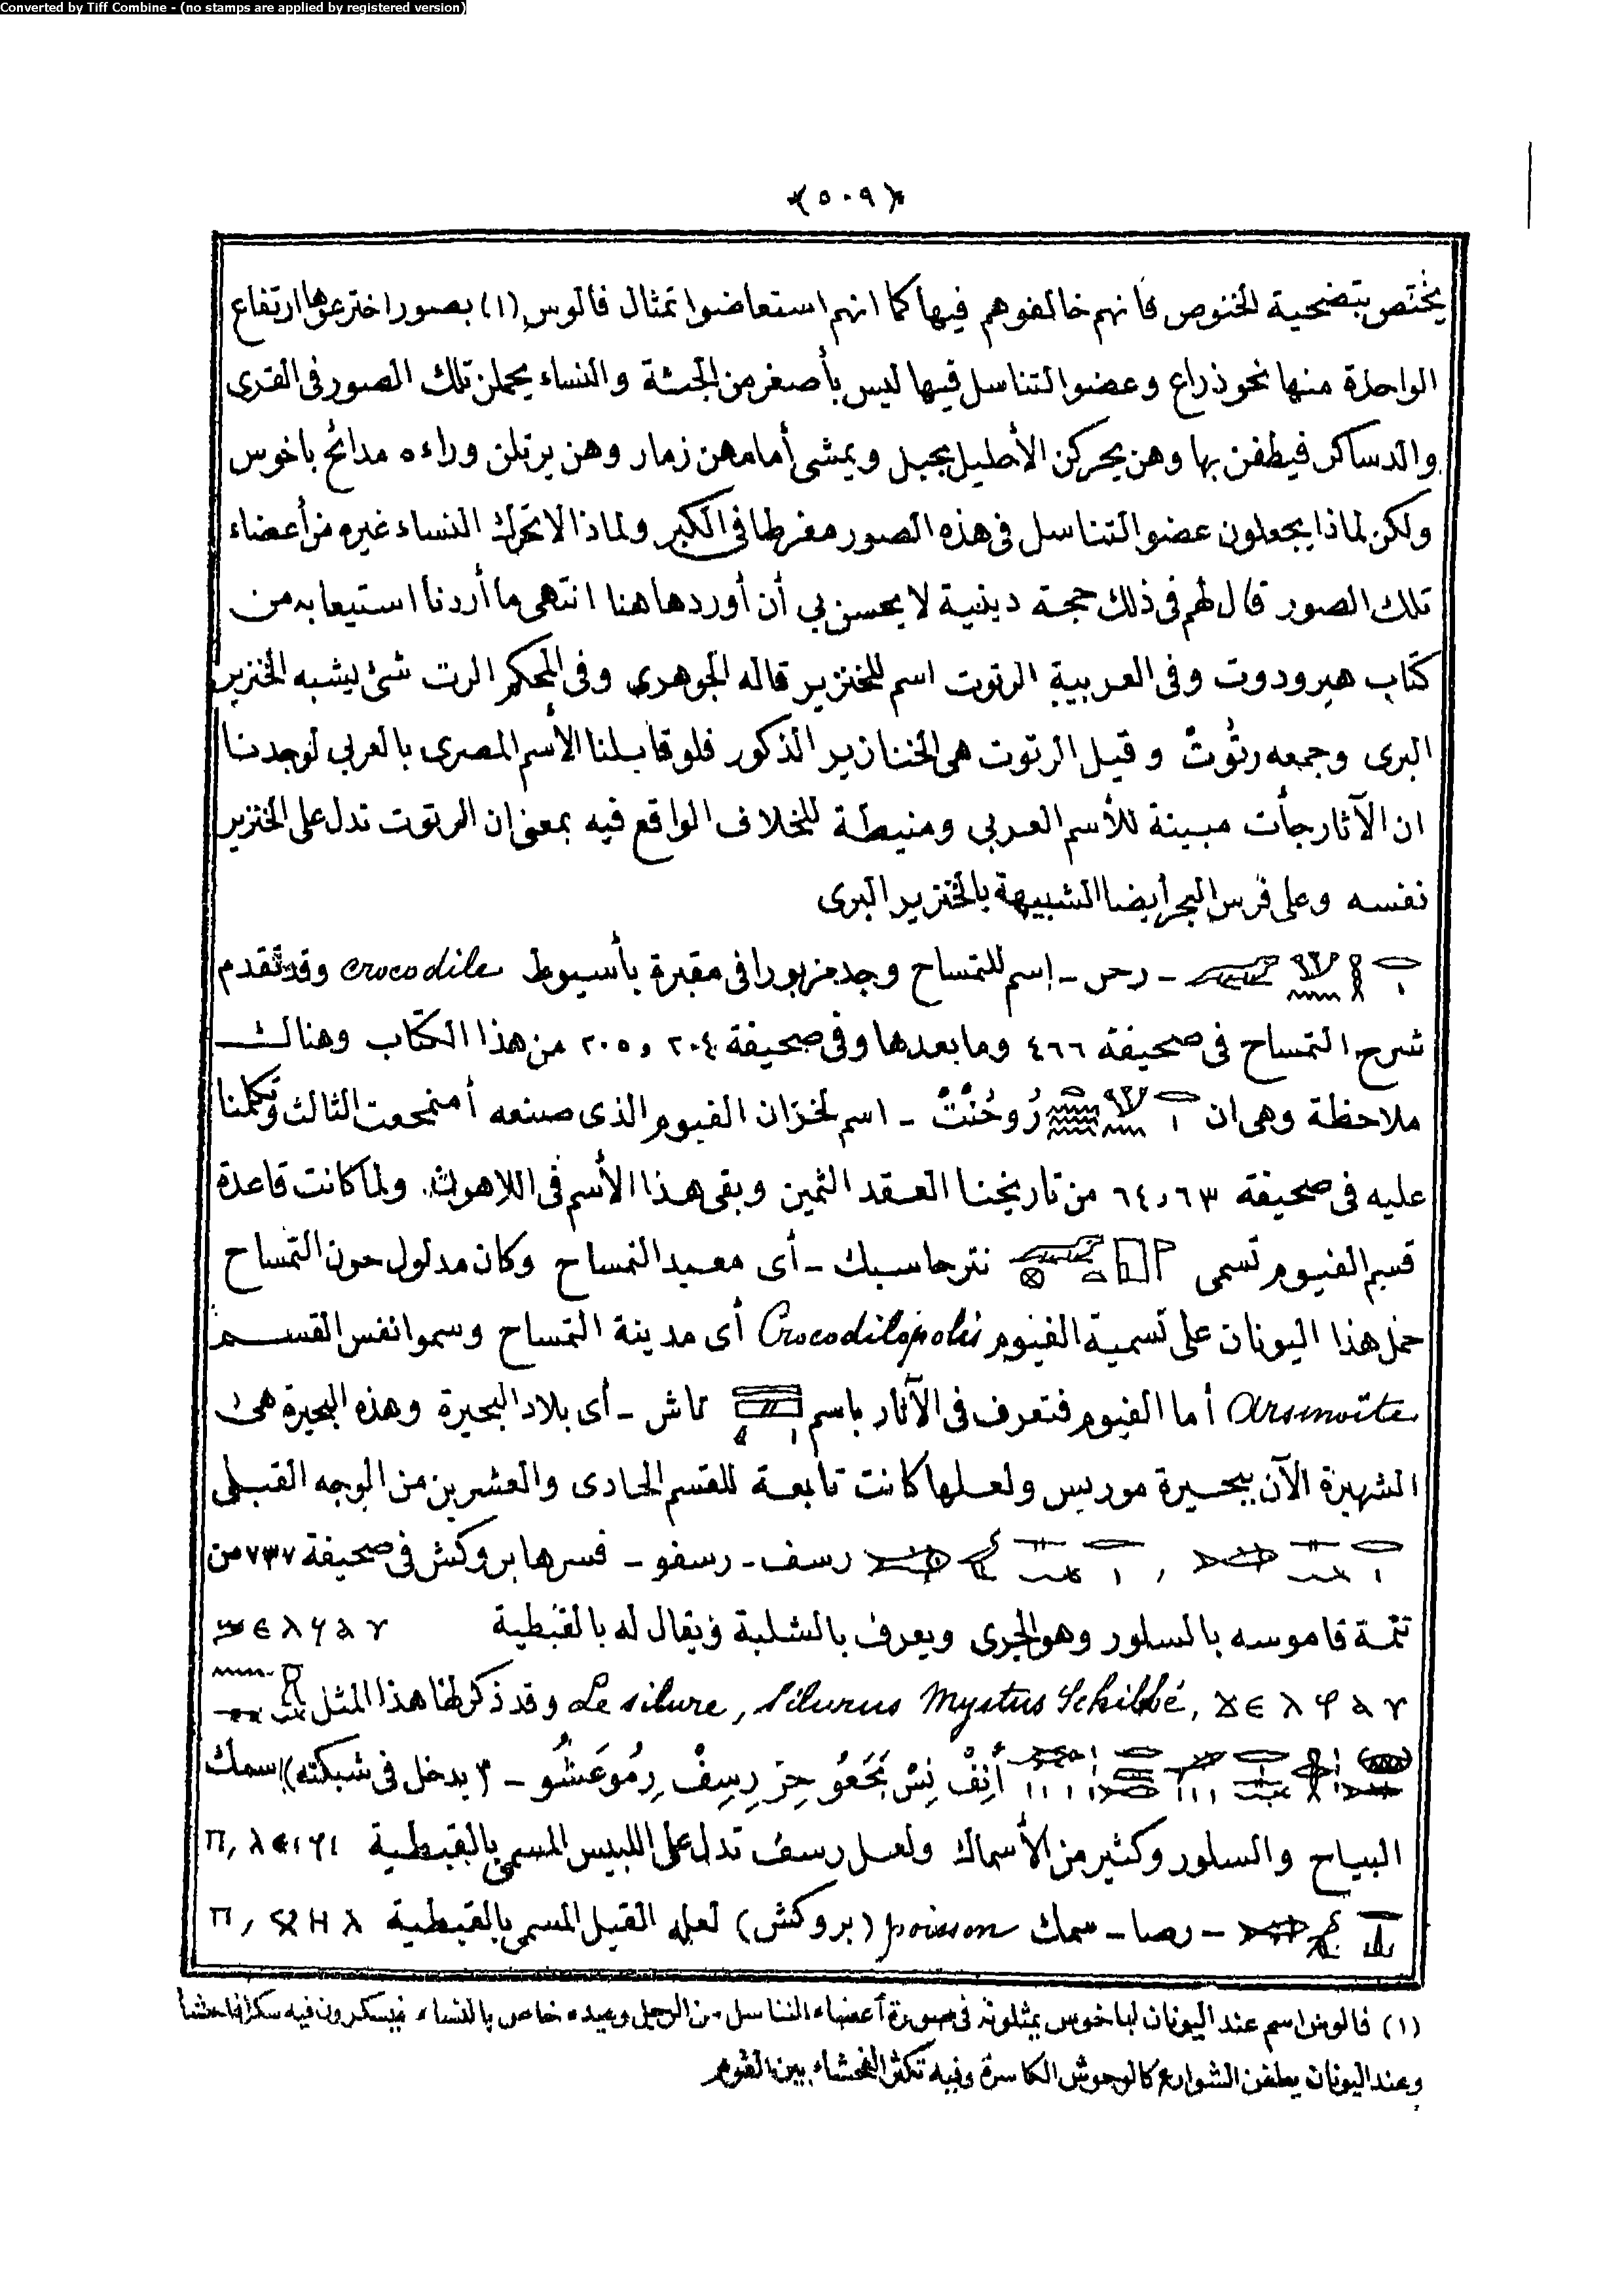 Converted by Tiff Combine - (no stamps are applied by registered version)
﴿٥٠٩﴾
يختص بتضحية الخنوص فانهم خالفوهم فيها كما انهم استعاضوا تمثال فالوس (١) بصور اخترعوها ارتفاع
الواحدة منها نحو ذراع وعضو التناسل فيها ليس بأصغر من الجثة والنساء يحملن تلك الصور فى القرى
والدساكر فيطفن بها وهن يحركن الأحليل بحبل ويمشى أمامهن زمار وهن يرتلن وراءه مدائح باخوس
ولكن لماذا يجعلون عضو التناسل فى هذه الصور مفرطا فى الكبر ولماذا لا تحرك النساء غيره من أعضاء
تلك الصور قال لهم فى ذلك حجة دينية لا يحسن بي أن أوردها هنا انتهى ما أردنا استيعابه من
كتاب هيرودوت وفى العربية الرتوت اسم للخنزير قاله الجوهرى وفى المحكم الرت شئ يشبه الخنزير
البرى وجمعه رتُوتٌ وقيل الرتوت هى الخنازير الذكور فلو قابلنا الأسم المصرى بالعربي لوجدنا
ان الآثار جأت مبينة للأسم العربي ومنيطة للخلاف الواقع فيه بمعنى ان الرتوت تدل على الخنزير
نفسه وعلى فرس البحر أيضا الشبيهة بالخنزير البرى
- رحن - إسم للتمساح وجد مزبورا فى مقبرة بأسيوط crocodile وقد تقدم
شرح التمساح فى صحيفة ٤٦٦ وما بعدها وفى صحيفة ٢٠٤ و ٢٠٥ من هذا الكتاب وهنالك
ملاحظة وهى ان رُوحُنْتْ - اسم لخزان الفيوم الذى صنعه أمنمحعت الثالث وتكلمنا
عليه فى صحيفة ٦٣ و ٦٤ من تاريخنا العقد الثمين وبقى هذا الأسم فى اللاهون ولما كانت قاعدة
قسم الفيوم تسمى نترحاسبك - أى معبد التمساح وكان مدلول حون التمساح
حمل هذا اليونان على تسمية الفيوم Crocodilopolis أى مدينة التمساح وسموا نفس القسم
Arsinoïte أما الفيوم فتعرف فى الآثار باسم تاش - أى بلاد البحيرة وهذه البحيرة هى
الشهيرة الآن ببحيرة موريس ولعلها كانت تابعة للقسم الحادى والعشرين من الوجه القبلى
, رسف - رسفو - فسرها بروكش فى صحيفة ٧٣٧ من
تتمة قاموسه بالسلور وهو الجرى ويعرف بالشلبة ويقال له بالقبطية
Le silure, Silurus Mystus Schilbé, وقد ذكر لنا هذا المثل
أَنِفْ نِسْ بَحَعُو حِرَ رِسِفْ رِمُوعَشُو - (يدخل فى شبكته) سمك
البياح والسلور وكثير من الأسماك ولعل رسف تدل على اللبيس المسمى بالقبطية
- رصا - سمك poisson (بروكش) لعله القيل المسمى بالقبطية
(١) فالوس اسم عند اليونان لباخوس يمثلونه فى صورة أعضاء التناسل من الرجل وعيده خاص بالنساء فيسكرون فيه سكرا فاحشا
وعند اليونان يطفن الشوارع كالوحوش الكاسرة وفيه تكثر الفحشاء بين القوم